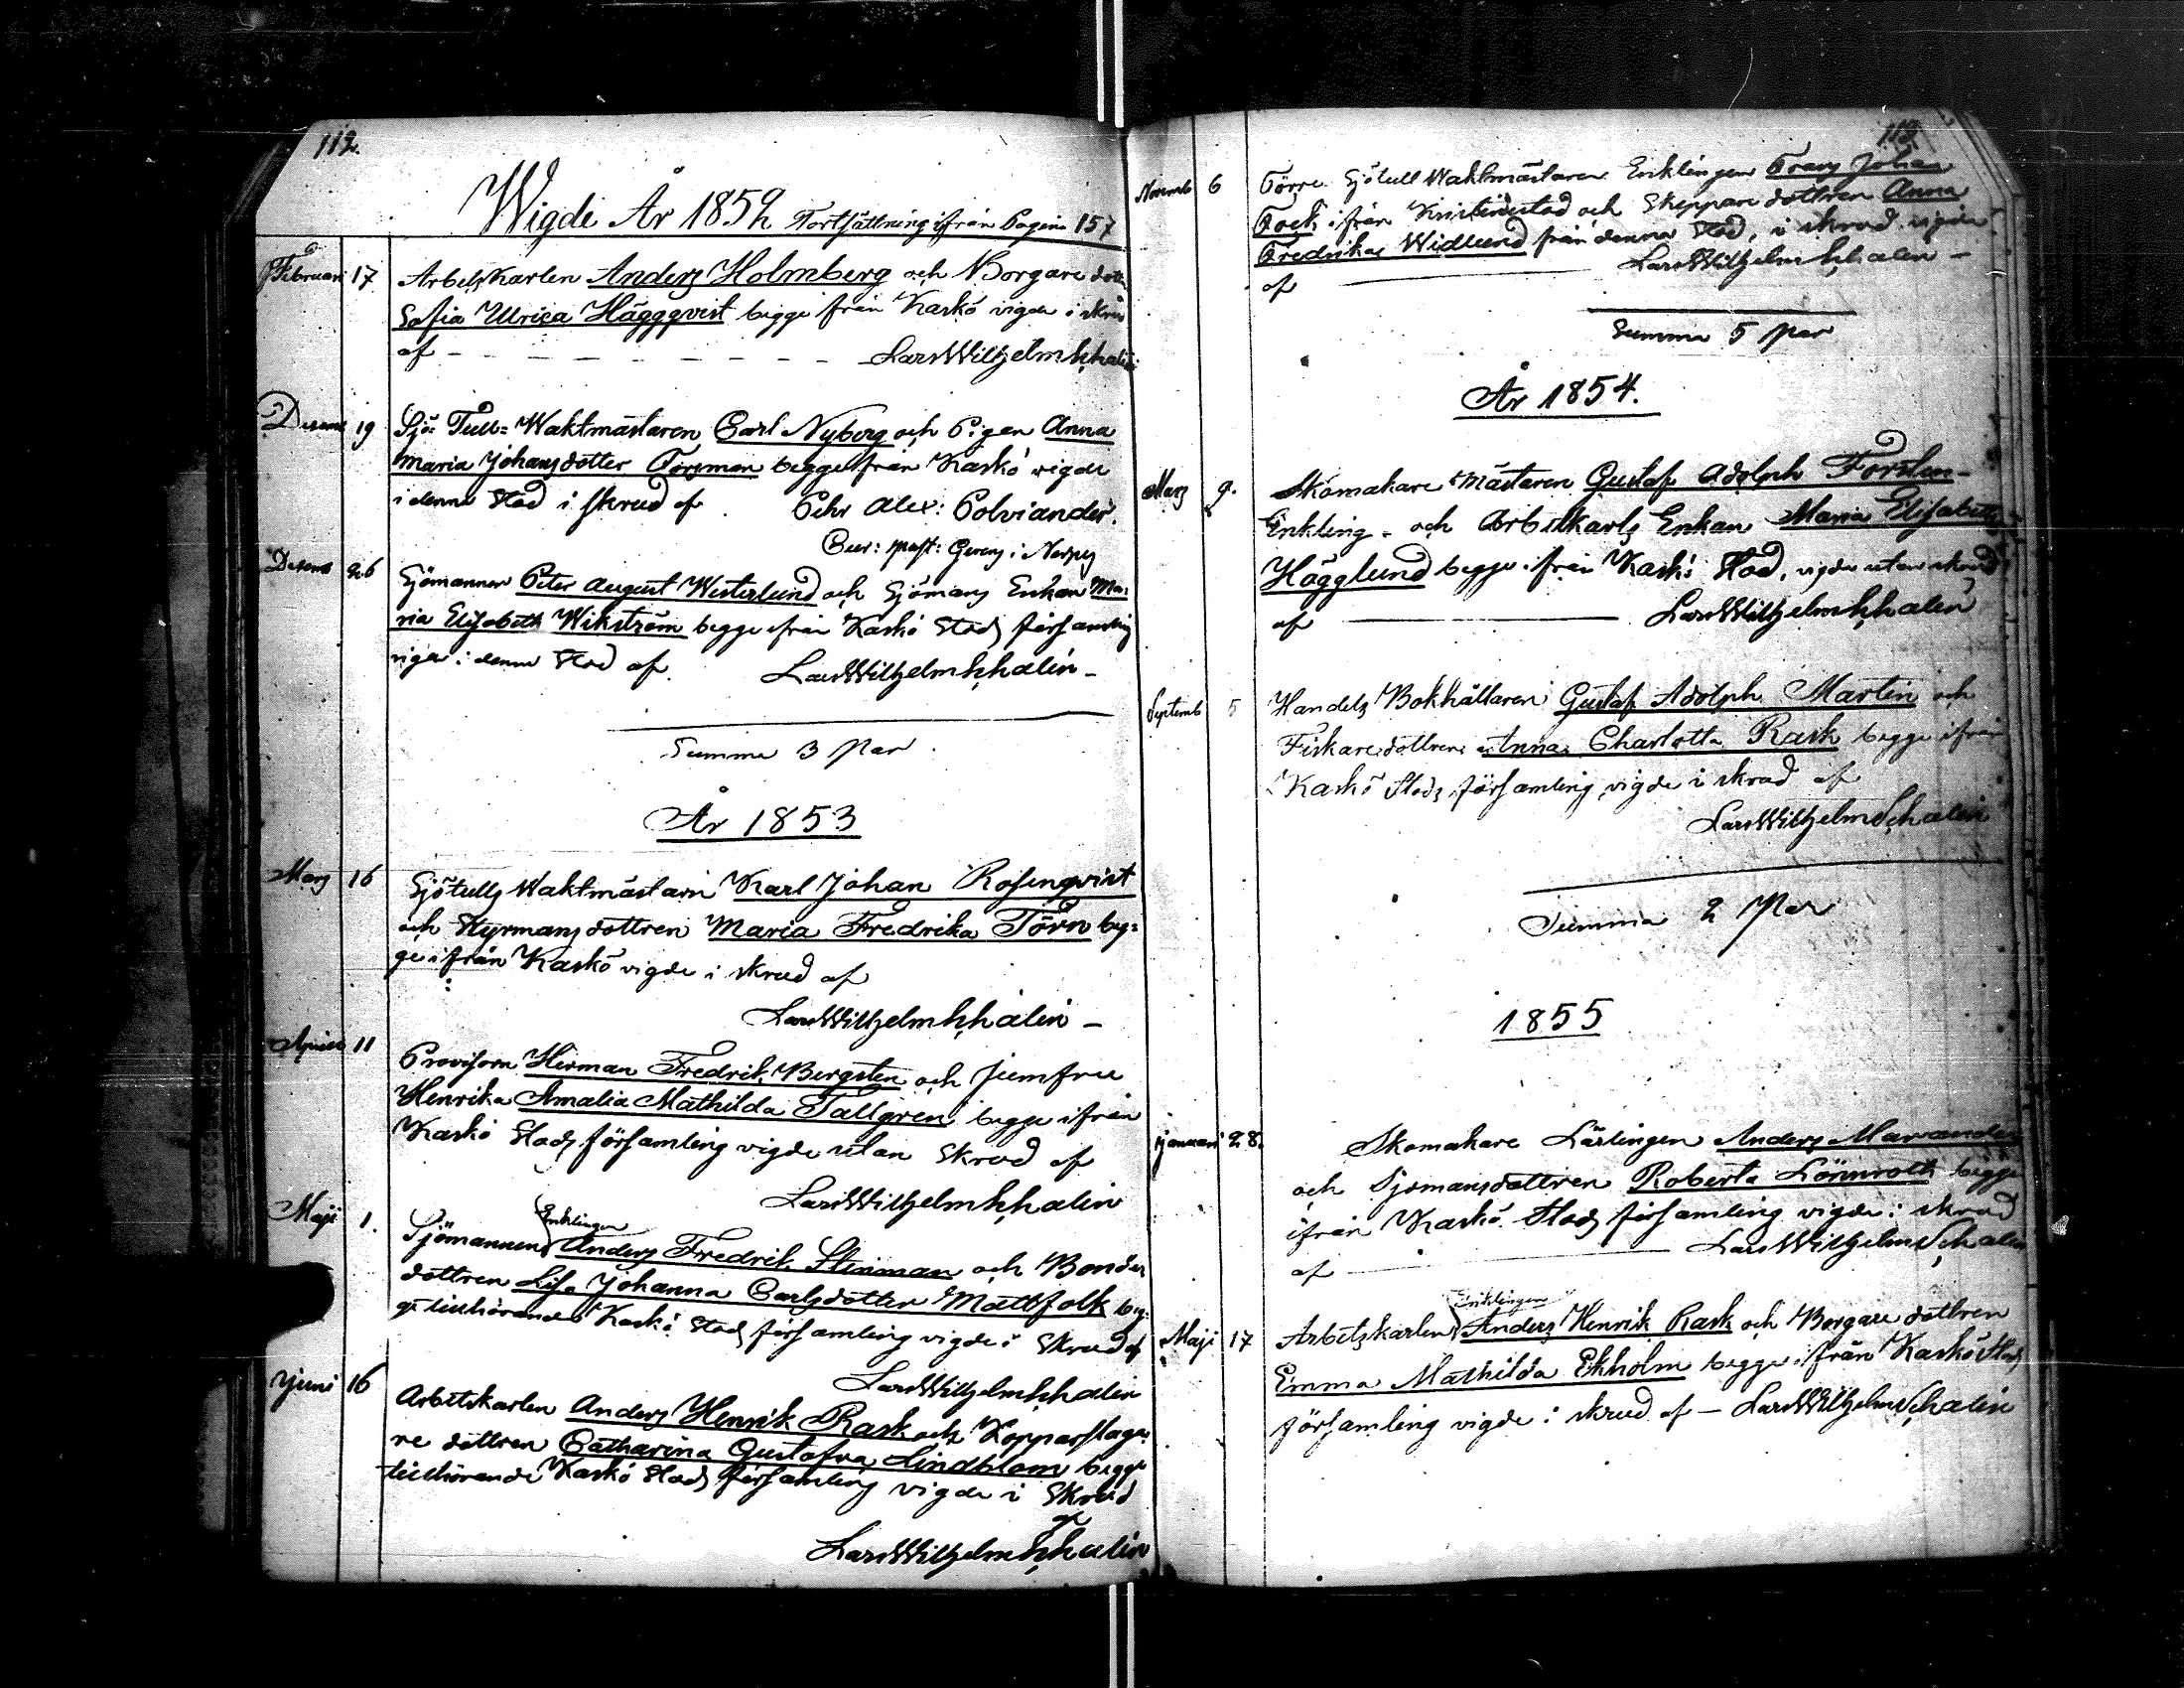 112.
Wigde År 1852 Fortsättning ifrån Pagina 157
Februari 17 Arbetskarlen Anders Holmberg och Borgare dott:
Sofia Ulrica Häggqvist begge från Kaskö vigde i skrud
af - - - - - - - - Lars Wilhelm Schalin
Decemb 19 Sjö-Tull-Waktmästaren Carl Nyberg och Pigan Anna
Maria Johansdotter Forsman begge från Kaskö vigde
i denna Stad i skrud af Pehr Alex: Polviander.
Decemb 26 Sjömannen Peter August Westerlund och Sjömans Enkan Ma-
ria Elisabeth Wikström begge ifrån Kaskö Stads församling
vigde i denna Stad af Lars Wilhelm Schalin -
Summa 3 Par.
År 1853
Mars 16 Sjötulls Waktmästarn Karl Johan Rosenqvist
och Styrmans dottren Maria Fredrika Törn beg-
ge ifrån Kaskö vigde i skrud af
Lars Wilhelm Schalin -
April 11 Provisorn Herman Fredrik Bergsten och jumfru
Henrika Amalia Mathilda Tallgren begge ifrån
Kaskö Stads församling vigde utan Skrud af
Lars Wilhelm Schalin
Maji 1. Sjömannen Enklingen Anders Fredrik Stenman och Bonde
dottren Lisa Johanna Carlsdotter Mattfolk beg-
ge tillhörande Kaskö Stads församling vigde i Skrud af
Lars Wilhelm Schalin
Juni 16 Arbetskarlen Anders Henrik Rask och Kopparslaga-
re dottren Catharina Gustafva Lindblom begge
tillhörande Kaskö Stads församling vigde i Skrud
af
Lars Wilhelm Schalin
113
Novemb 6 Förre Sjötull Waktmästaren Enklingen Frans Johan
Fock ifrån Kristinestad och Skeppare dottren Anna
Fredrika Widlund från denna Stad, i skrud vigde
af Lars Wilhelm Schalin -
Summa 5 par
År 1854.
Mars 9. Skomakare Mästaren Gustaf Adolph Forsten -
Enkling - och Arbetkarls Enkan Maria Elisabeth
Högglund begge ifrån Kaskö Stad, vigde utan skrud
af Lars Wilhelm Schalin
Septemb 5 Handels Bokhållaren Gustaf Adolph Martin och
Fiskaredottren Anna Charlotta Rask begge ifrån
Kaskö Stads församling vigde i skrud af
Lars Wilhelm Schalin
Summa 2 Par
1855
Januari 28. Skomakare Lärlingen Anders
och Sjömansdottren Roberta Lönnroth begge
ifrån Kaskö Stads församling vigde i skrud
af Lars Wilhelm Schalin
Maji 17 Arbetskarlen Enklingen Anders Henrik Rask och Borgare dottren
Emma Mathilda Ekholm begge ifrån Kaskö Stads
församling vigde i skrud af - Lars Wilhelm Schalin